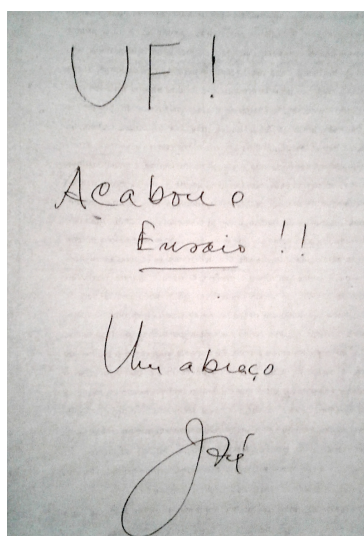 UF!
Acabou o
Ensaio!!
Um abraço
José